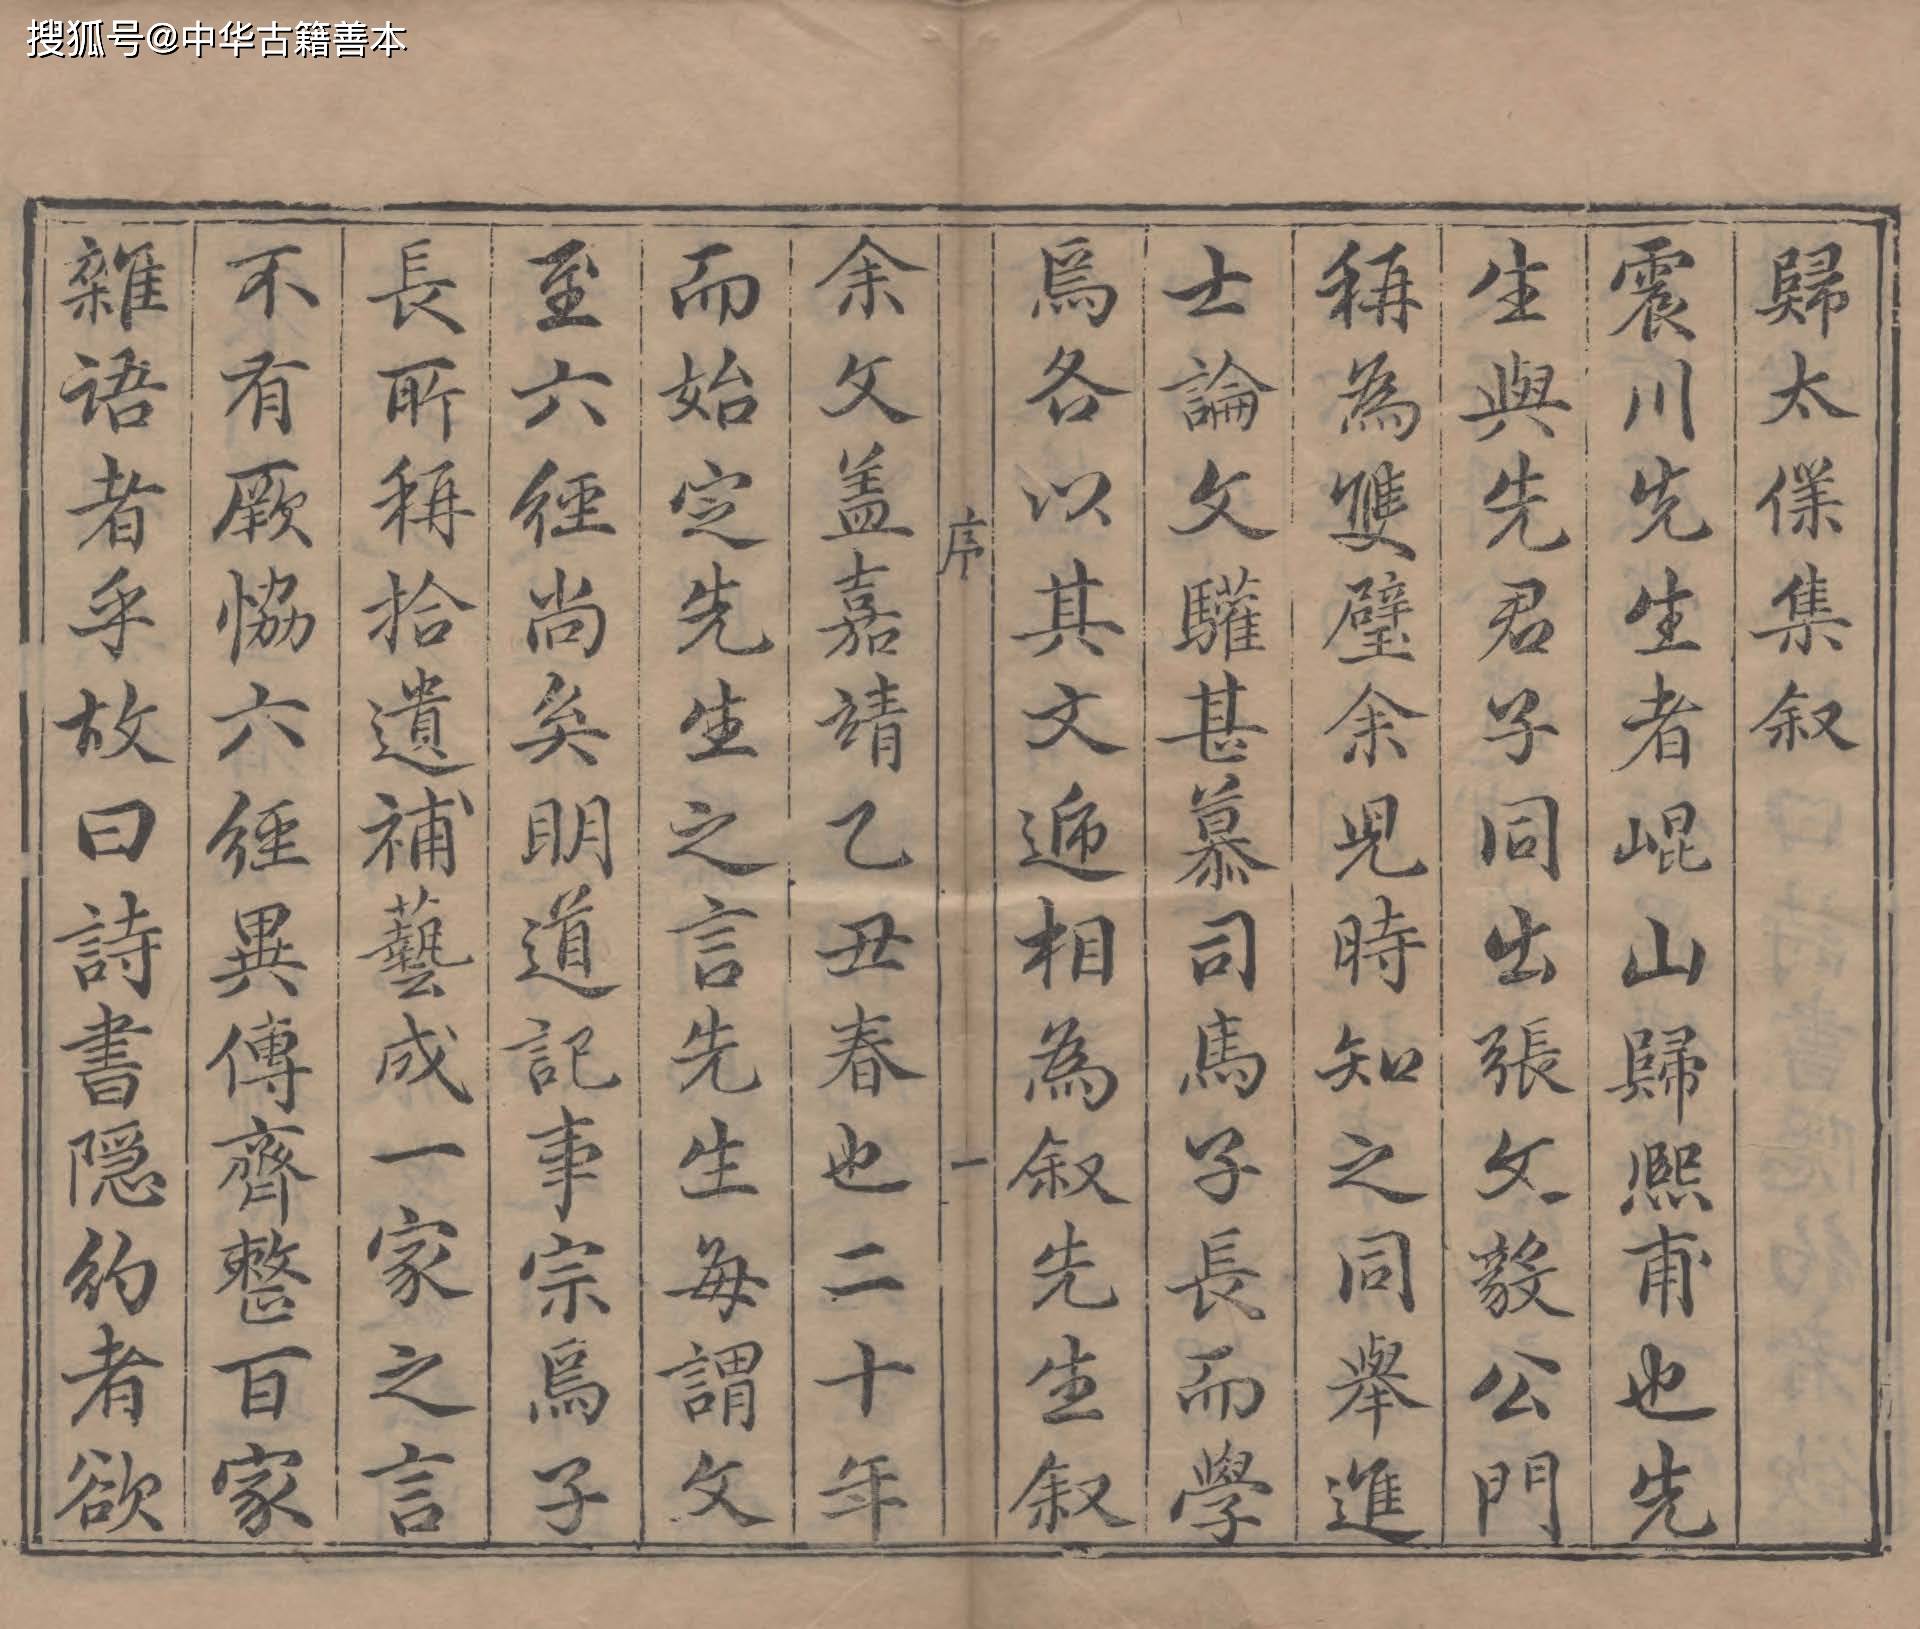 搜狐号@中华古籍善本
歸太僕集叙
震川先生者崐山歸熙甫也先
生與先君子同出張文毅公門
稱為雙璧余兒時知之同舉進
士論文驩甚慕司馬子長而學
焉各以其文遞相為叙先生叙
序
一
余文盖嘉靖乙丑春也二十年
而始定先生之言先生每謂文
至六經尚矣明道記事宗焉子
長所稱拾遺補藝成一家之言
不有厥恊六經異傳齊整百家
雜語者乎故曰詩書隱約者欲